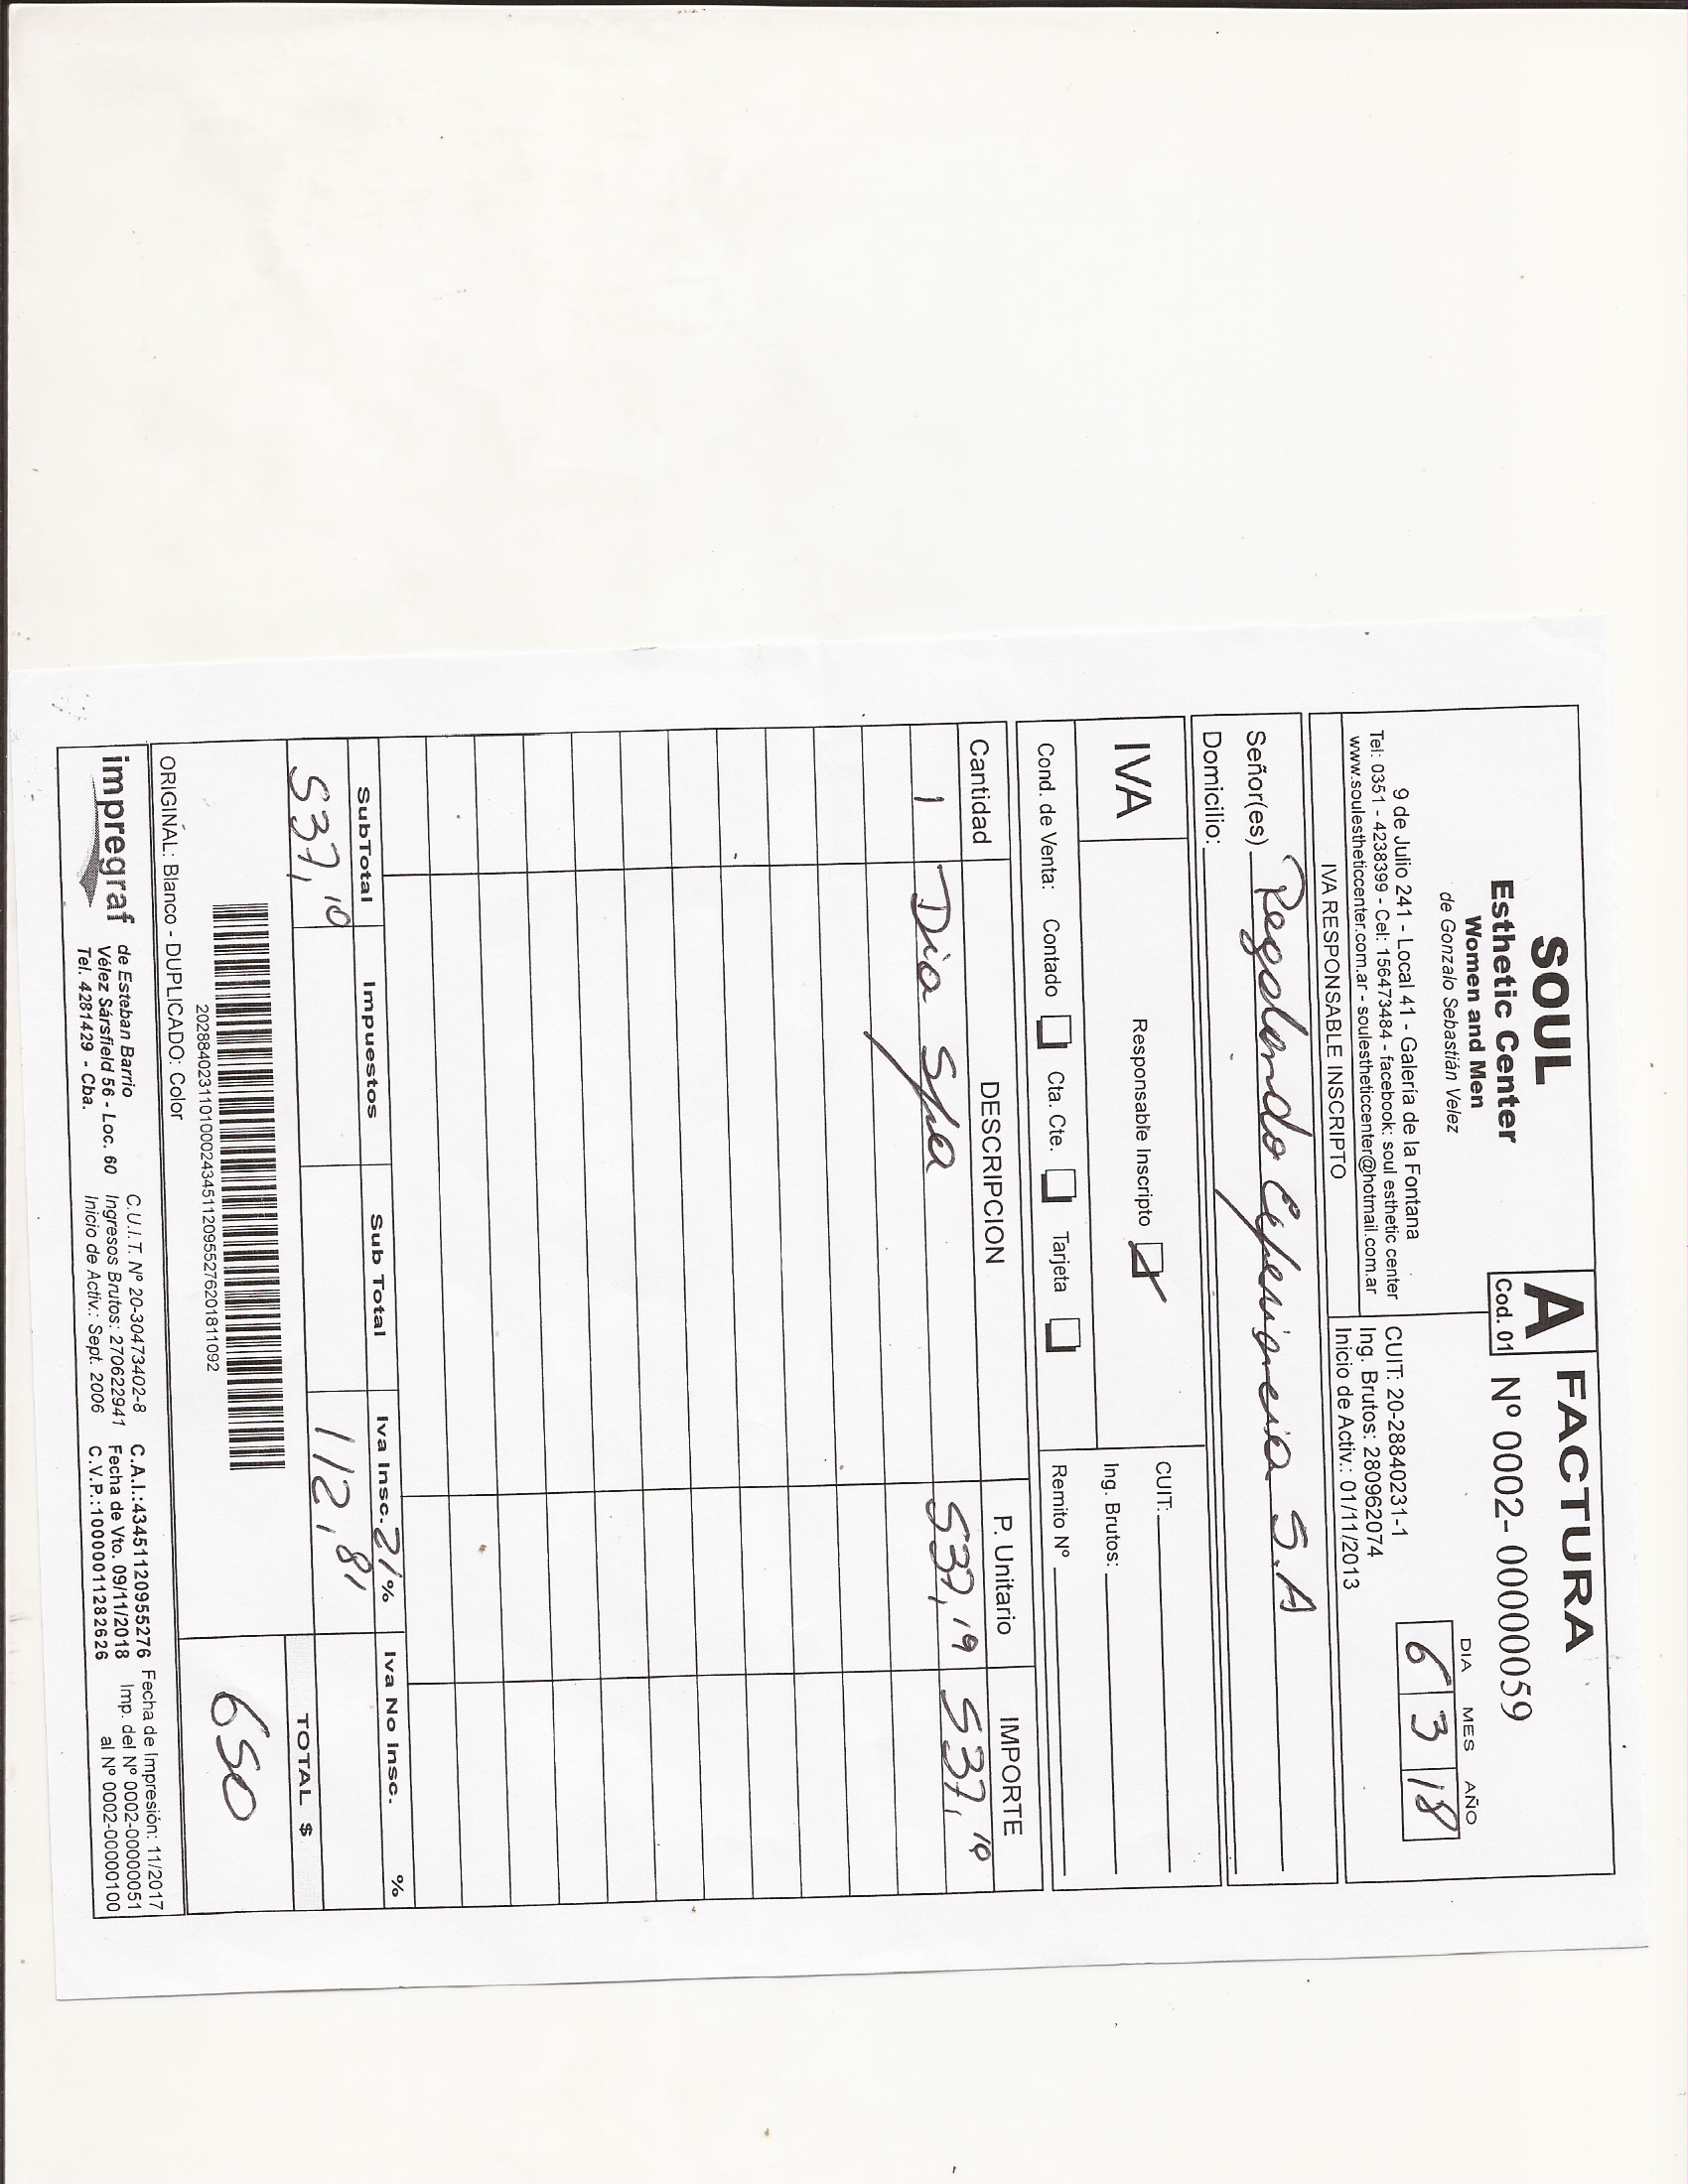 SOUL
Esthetic Center
Women and Men
de Gonzalo Sebastián Velez
9 de Julio 241 - Local 41 - Galería de la Fontana
Tel: 0351 - 4238399 - Cel: 156473484 - facebook: soul esthetic center
www.soulestheticcenter.com.ar - soulestheticcenter@hotmail.com.ar
IVA RESPONSABLE INSCRIPTO
A
Cod. 01
FACTURA
Nº 0002- 00000059
DIA MES AÑO
6 3 18
CUIT: 20-28840231-1
Ing. Brutos: 280962074
Inicio de Activ.: 01/11/2013
Señor(es) Regalando Experiencia S.A
Domicilio:
IVA
Responsable Inscripto
CUIT:
Ing. Brutos:
Cond. de Venta: Contado Cta. Cte. Tarjeta
Remito Nº
Cantidad DESCRIPCION P. Unitario IMPORTE
1 Dia Spa 537,19 537,19
SubTotal Impuestos Sub Total Iva Insc. 21 % Iva No Insc. %
537,19 112,81
TOTAL $
650
2028840231101000243451120955276201811092
ORIGINAL: Blanco - DUPLICADO: Color
impregraf
de Esteban Barrio
Vélez Sársfield 56 - Loc. 60
Tel. 4281429 - Cba.
C.U.I.T. Nº 20-30473402-8
Ingresos Brutos: 270622941
Inicio de Activ.: Sept. 2006
C.A.I.:43451120955276
Fecha de Vto. 09/11/2018
C.V.P.:10000011282626
Fecha de Impresión: 11/2017
Imp. del Nº 0002-00000051
al Nº 0002-00000100